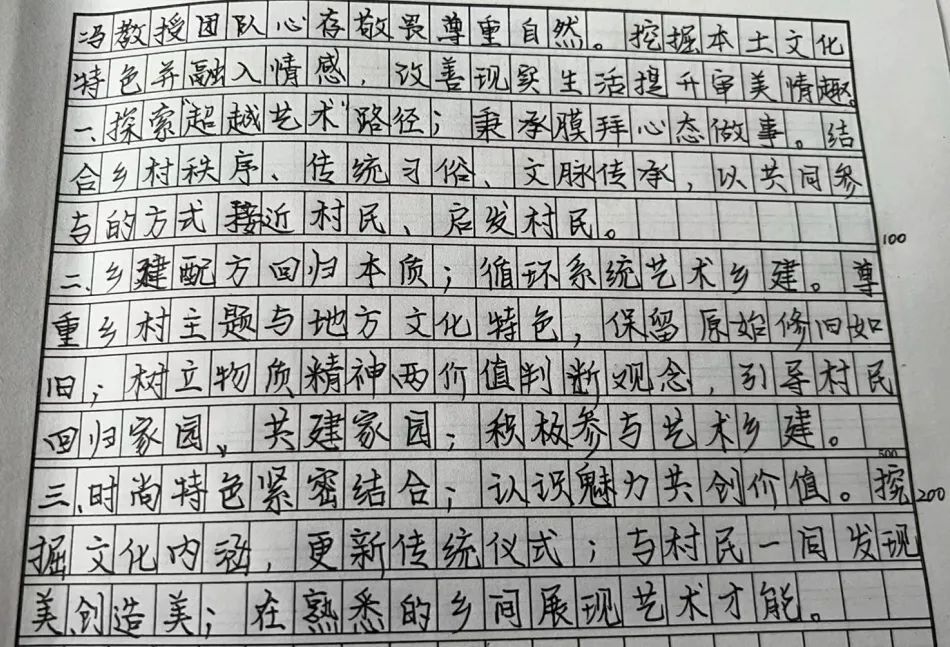 冯教授团队心存敬畏尊重自然。挖掘本土文化
特色并融入情感，改善现实生活提升审美情趣。
一、探索“超越艺术”路径；秉承膜拜心态做事。结
合乡村秩序、传统习俗、文脉传承，以共同参
与的方式接近村民、启发村民。
100
二、乡建配方回归本质；循环系统艺术乡建。尊
重乡村主题与地方文化特色，保留原始修旧如
旧；树立物质精神两价值判断观念，引导村民
回归家园、共建家园；积极参与艺术乡建。
500
三、时尚特色紧密结合；认识魅力共创价值。挖
200
掘文化内涵，更新传统仪式；与村民一同发现
美、创造美；在熟悉的乡间展现艺术才能。